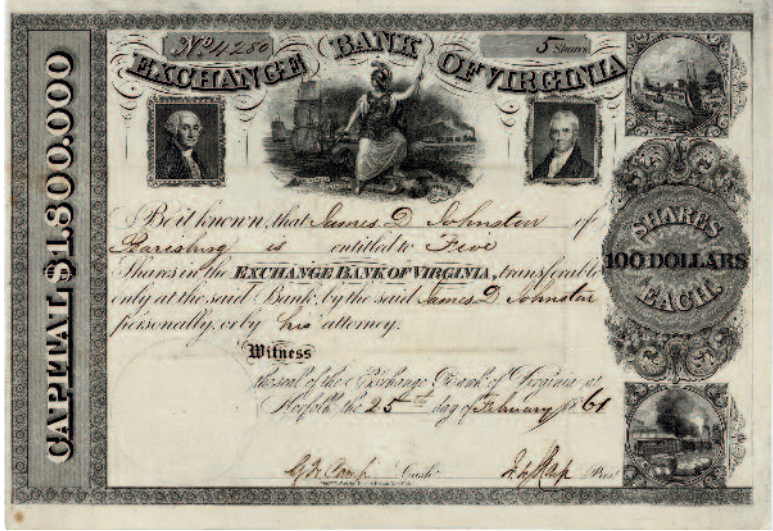 CAPITAL $1.800.000
No 4280
5 Shares
EXCHANGE BANK OF VIRGINIA
Be it known, that James D Johnston of
Pearisburg is entitled to Five
Shares in the EXCHANGE BANK OF VIRGINIA, transferable
only at the said Bank, by the said James D Johnston
personally, or by his attorney.
Witness
the seal of the Exchange Bank of Virginia at
Norfolk the 25th day of February 1861
Cash.r
Pres.t
SHARES
100 DOLLARS
EACH.